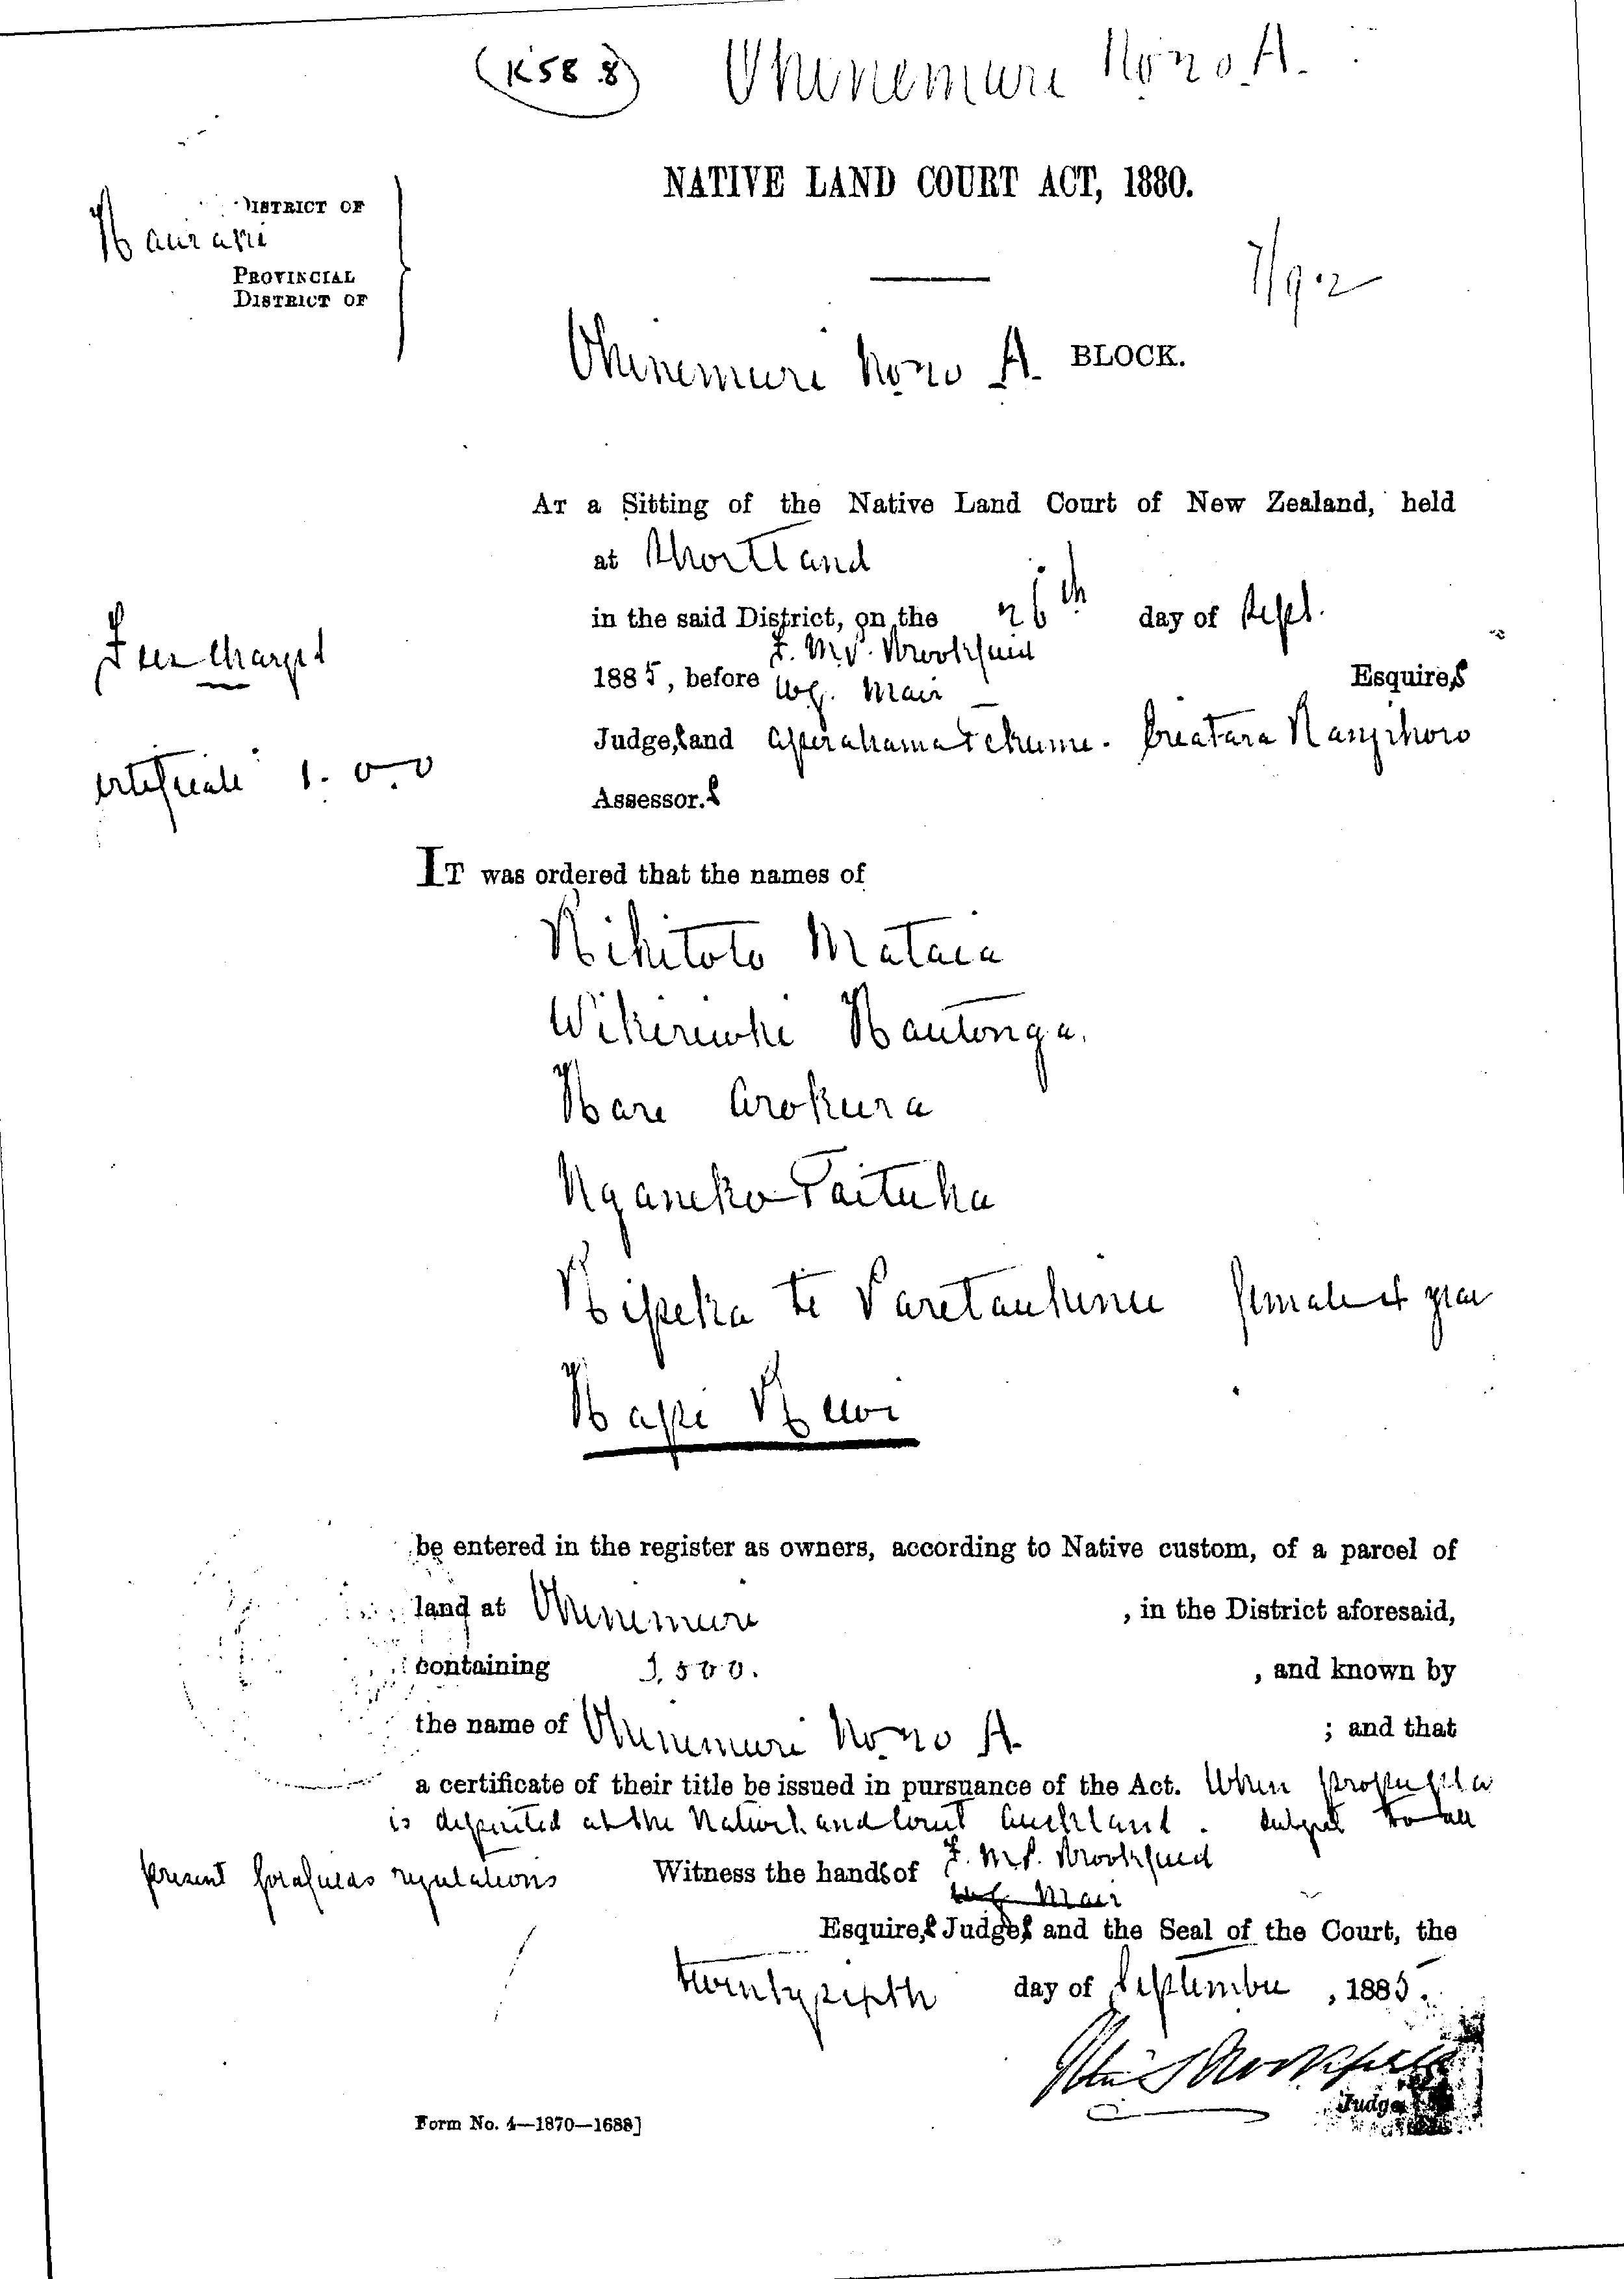 (K58.8) Ohinemuri No 20 A.
NATIVE LAND COURT ACT, 1880.
DISTRICT OF
Hauraki
PROVINCIAL
DISTRICT OF
7/9.2
Ohinemuri No 20 A. BLOCK.
AT a Sitting of the Native Land Court of New Zealand, held
at Shortland
in the said District, on the 26th day of Sept.
F. M. P. Brookfield
1885, before W.G. Mair Esquires
Judges and Apirahama Erueti
Fees Charged
ertificate 1. 0. 0
Assessor.s
IT was ordered that the names of
Rihitoto Mataia
Wikiriwhi Hautonga.
Hare Arokura
Nganeko Taituha
Ripeka te Paretauhinu female
Hapi Rewi
be entered in the register as owners, according to Native custom, of a parcel of
land at Ohinemuri , in the District aforesaid,
containing 1,500. , and known by
the name of Ohinemuri No 20 A. ; and that
a certificate of their title be issued in pursuance of the Act. When proper pla
is deposited at the Native Land Court Auckland. Subject to all
present goldfields regulations
Witness the hands of F. M. P. Brookfield
W.G. Mair
Esquires Judges and the Seal of the Court, the
twenty sixth day of September , 1885.
Judge
Form No. 4—1870—1688]